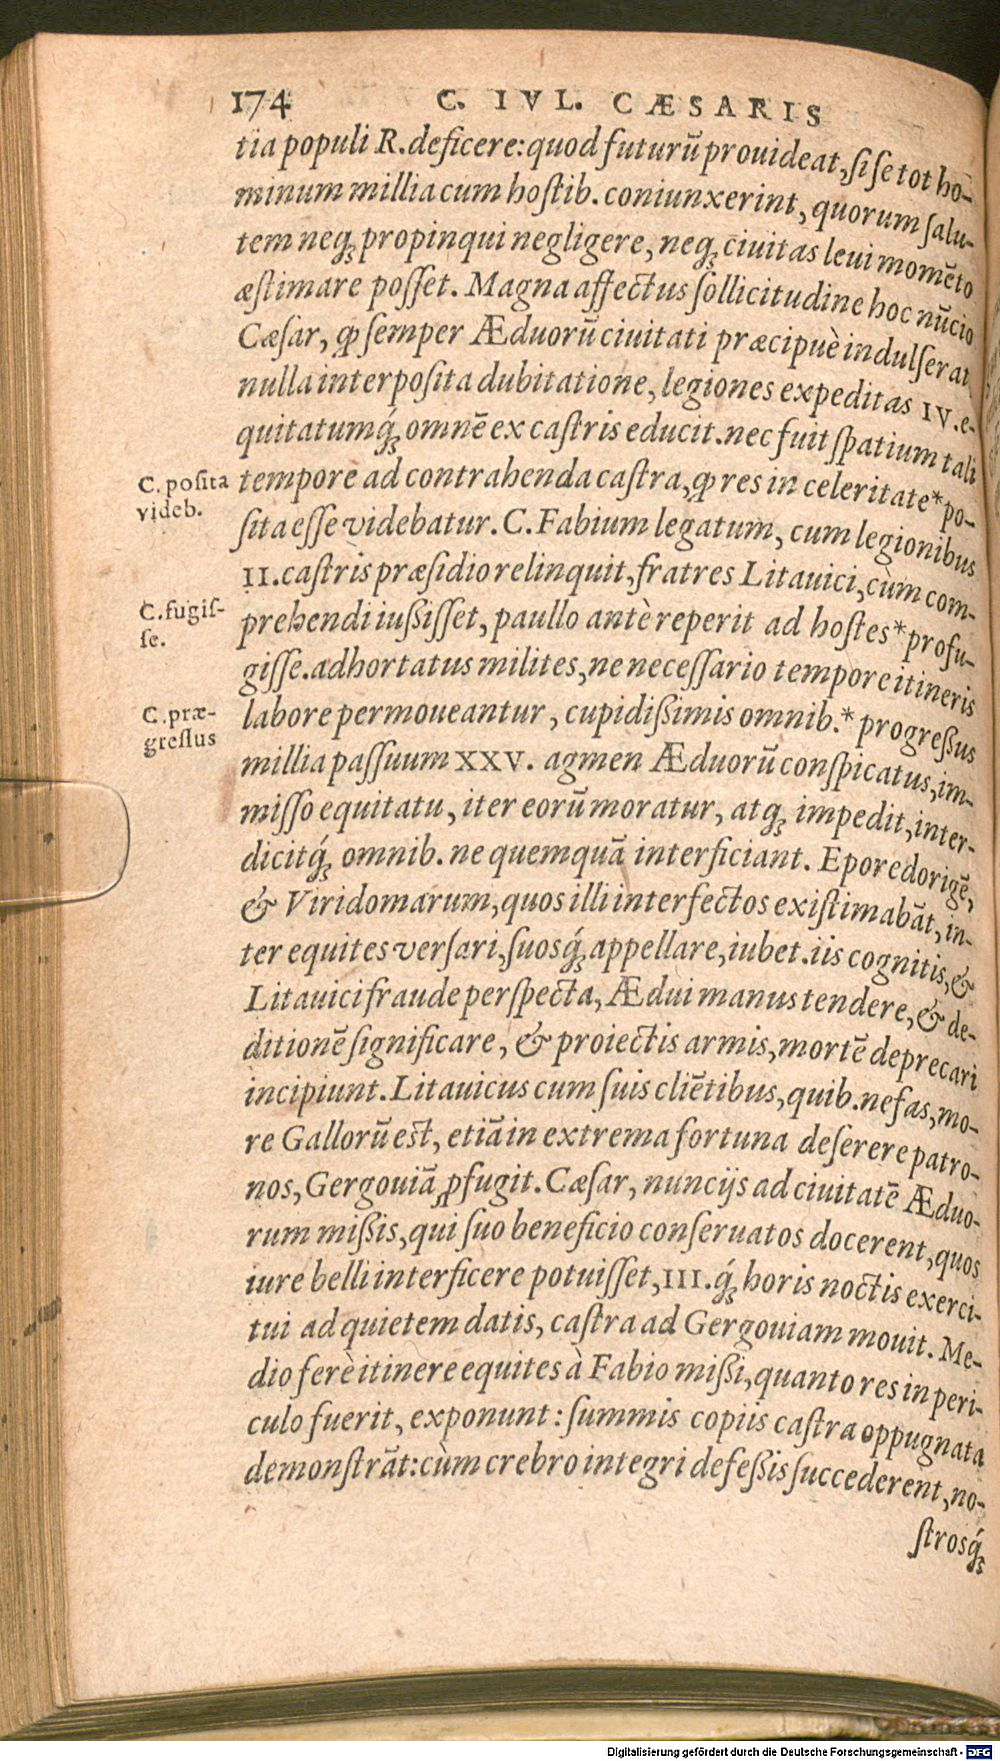 174 C. IVL. CÆSARIS
tia populi R. deficere: quod futurū prouideat, si se tot ho-
minum millia cum hostib. coniunxerint, quorum salu-
tem neqꝫ propinqui negligere, neqꝫ ciuitas leui momēto
æstimare posset. Magna affectus sollicitudine hoc nūcio
Cæsar, ꝙ semper Æduorū ciuitati præcipuè indulserat,
nulla interposita dubitatione, legiones expeditas IV. e-
quitatumq́ꝫ omnē ex castris educit. nec fuit spatium tali
C. posita
videb.
tempore ad contrahenda castra, ꝙ res in celeritate* po-
sita esse videbatur. C. Fabium legatum, cum legionibus
II. castris præsidio relinquit, fratres Litauici, cùm com-
C. fugis-
se.
prehendi iußisset, paullo antè reperit ad hostes* profu-
gisse. adhortatus milites, ne necessario tempore itineris
C. præ-
gressus
labore permoueantur, cupidißimis omnib.* progreßus
millia passuum XXV. agmen Æduorū conspicatus, im-
misso equitatu, iter eorū moratur, atqꝫ impedit, inter-
dicitq́ꝫ omnib. ne quemquā interficiant. Eporedorigē,
& Viridomarum, quos illi interfectos existimabāt, in-
ter equites versari, suosq́ꝫ appellare, iubet. iis cognitis, &
Litauici fraude perspecta, Ædui manus tendere, & de-
ditionē significare, & proiectis armis, mortē deprecari
incipiunt. Litauicus cum suis cliētibus, quib. nefas, mo-
re Gallorū est, etiā in extrema fortuna deserere patro-
nos, Gergouiā ꝓfugit. Cæsar, nuncijs ad ciuitatē Æduo-
rum mißis, qui suo beneficio conseruatos docerent, quos
iure belli interficere potuisset, III. q́ꝫ horis noctis exerci-
tui ad quietem datis, castra ad Gergouiam mouit. Me-
dio ferè itinere equites à Fabio mißi, quanto res in peri-
culo fuerit, exponunt: summis copiis castra oppugnata
demonstrāt: cùm crebro integri defeßis succederent, no-
strosq́ꝫ
Digitalisierung gefördert durch die Deutsche Forschungsgemeinschaft - DFG